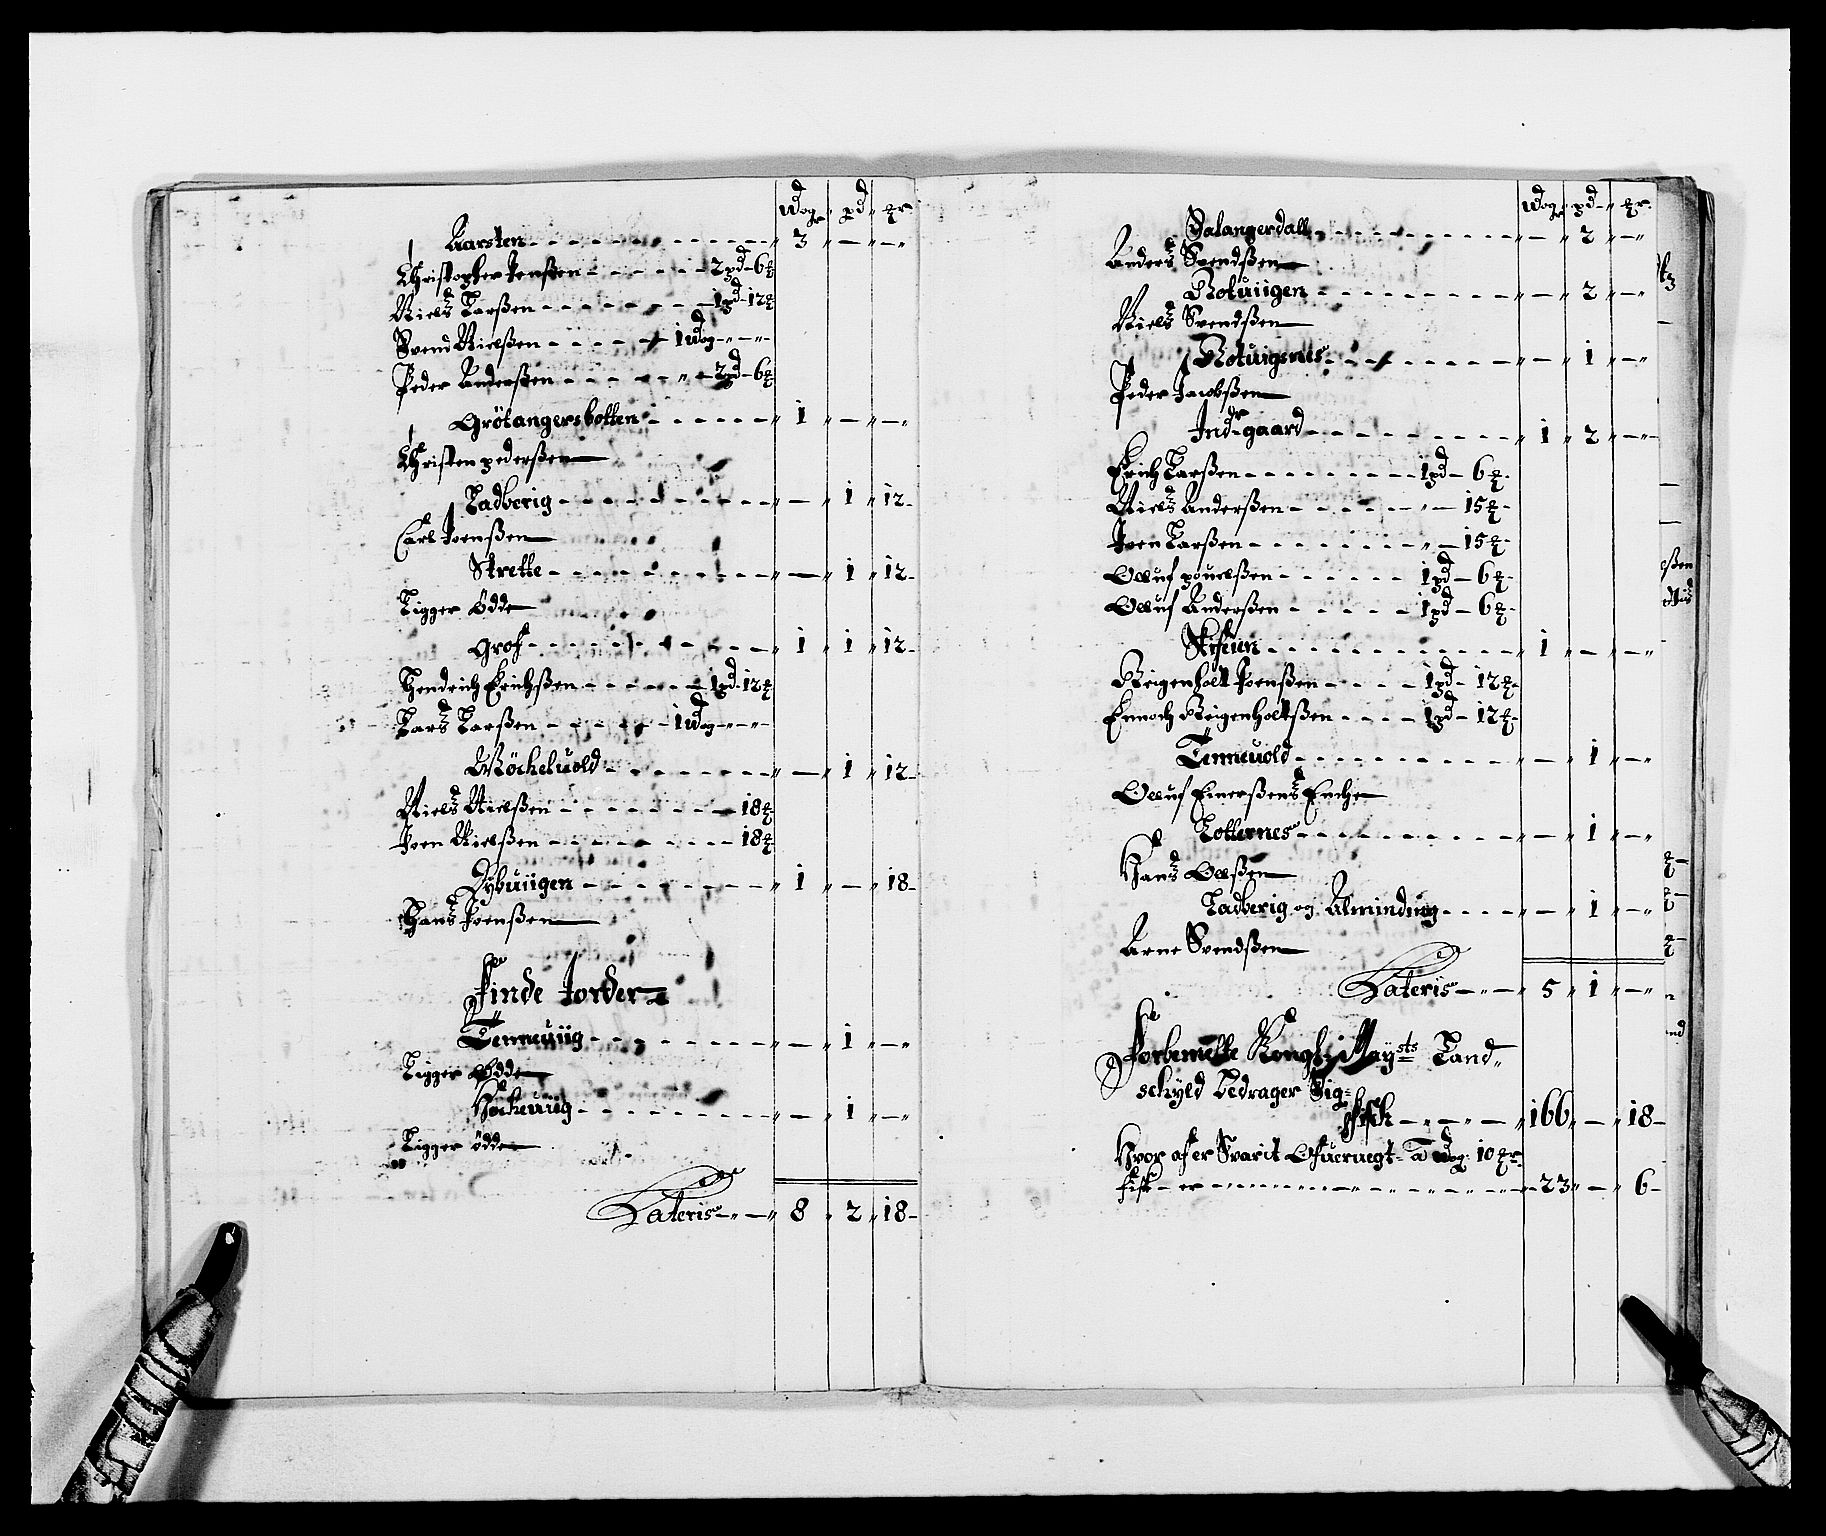 Wog pd ℔r
Aarsten - - - 3 „ — „ — „
Christopher Jenßen - - - 2pd - 6℔
Niels Larßen - - - 1pd - 12℔
Svend Nielßen - - - 1 Wog - „ - „
Peder Anderßen - - - 2pd - 6℔
Grötangersbotten - - - 1 „ — „ — „
Christen pederßen
Ladberig - - - „ — „ 1 „ 12 -
Carl Joenßen
Strette - - - „ — „ 1 „ 12 -
Ligger Ödde
Grof - - - „ 1 „ 1 „ 12 -
Hendrich Erichßen - - - 1pd - 12℔
Lars Larßen - - - 1 Wog - „ - „
Möcheluold - - - „ — „ 1 „ 12 -
Niels Nielßen - - - 18℔
Joen Nielßen - - - 18℔
Dybuiigen - - - „ 1 „ — „ 18 -
Hans Joenßen
Finde Jorder
Tenneuiig - - - „ — „ 1 „ — „
Ligger Ödde
Hockeuiig - - - „ — „ 1 „ — „
Ligger ödde
Lateris - „ - „ 8 „ 2 „ 18 -
Wog pd ℔r
Salangerdall - - - „ — „ 2 „ — „
Anders Svendßen
Rotuiigen - - - „ — „ 2 „ — „
Niels Svendßen
Rotuigsnes - - - „ — „ 1 „ — „
Peder Jacobßen
Indr-gaard - - - „ 1 „ 2 „ — „
Erich Larßen - - - 1pd - 6℔
Niels Anderßen - - - „ - 15℔
Joen Larßen - - - „ - 15℔
Oeluf pouelßen - - - 1pd - 6℔
Oeluf Anderßen - - - 1pd - 6℔
Skifuen - - - „ 1 „ — „ — „
Reigenholt Joenßen - - - 1pd - 12℔
Ennoch Reigenholtßen - - - 1pd - 12℔
Tenneuold - - - „ — „ 1 „ — „
Oeluf Einerßens Enche
Kotternes - - - „ — „ 1 „ — „
Hans Oelßen
Ladberig og Alminding - - - „ — „ 1 „ — „
Arne Svendßen
Lateris - „ - „ 5 „ 1 „ — „
Forbemelte Kongl: Maysts Land„
schyld bedrager Sig=
Fisk - „ - „ - 166 „ — „ 18 -
Hvor af er Svarit Ofueruegt - a Wog: 10 ℔r
fisk - er - - - 23 „ — „ 6 -